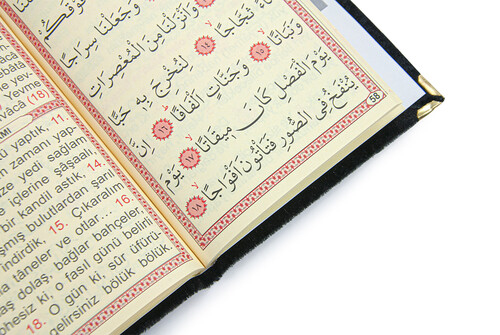 وَجَعَلْنَا سِرَاجًا
وَاَنْزَلْنَا مِنَ الْمُعْصِرَاتِ
ثَجَّاجًا ١٤ لِنُخْرِجَ بِهِ حَبًّا
وَنَبَاتًا ١٥ وَجَنَّاتٍ اَلْفَافًا ١٦ اِنَّ
يَوْمَ الْفَصْلِ كَانَ مِيقَاتًا ١٧ يَوْمَ
يُنْفَخُ فِي الصُّورِ فَتَأْتُونَ اَفْوَاجًا ١٨
58
(18)
yaptık. 11.
zamanı yap-
ze yedi sağlam
içlerine şâşaalı
bir kandil astık. 14.
bulutlardan şarıl
indirdik. 15. Çıkaralım
tâneler ve otlar... 16.
dolaş, bağlar bahçeler.
ki, o fasıl günü belirli
18. O gün ki, sûr üfürü-
gelirsiniz bölük bölük